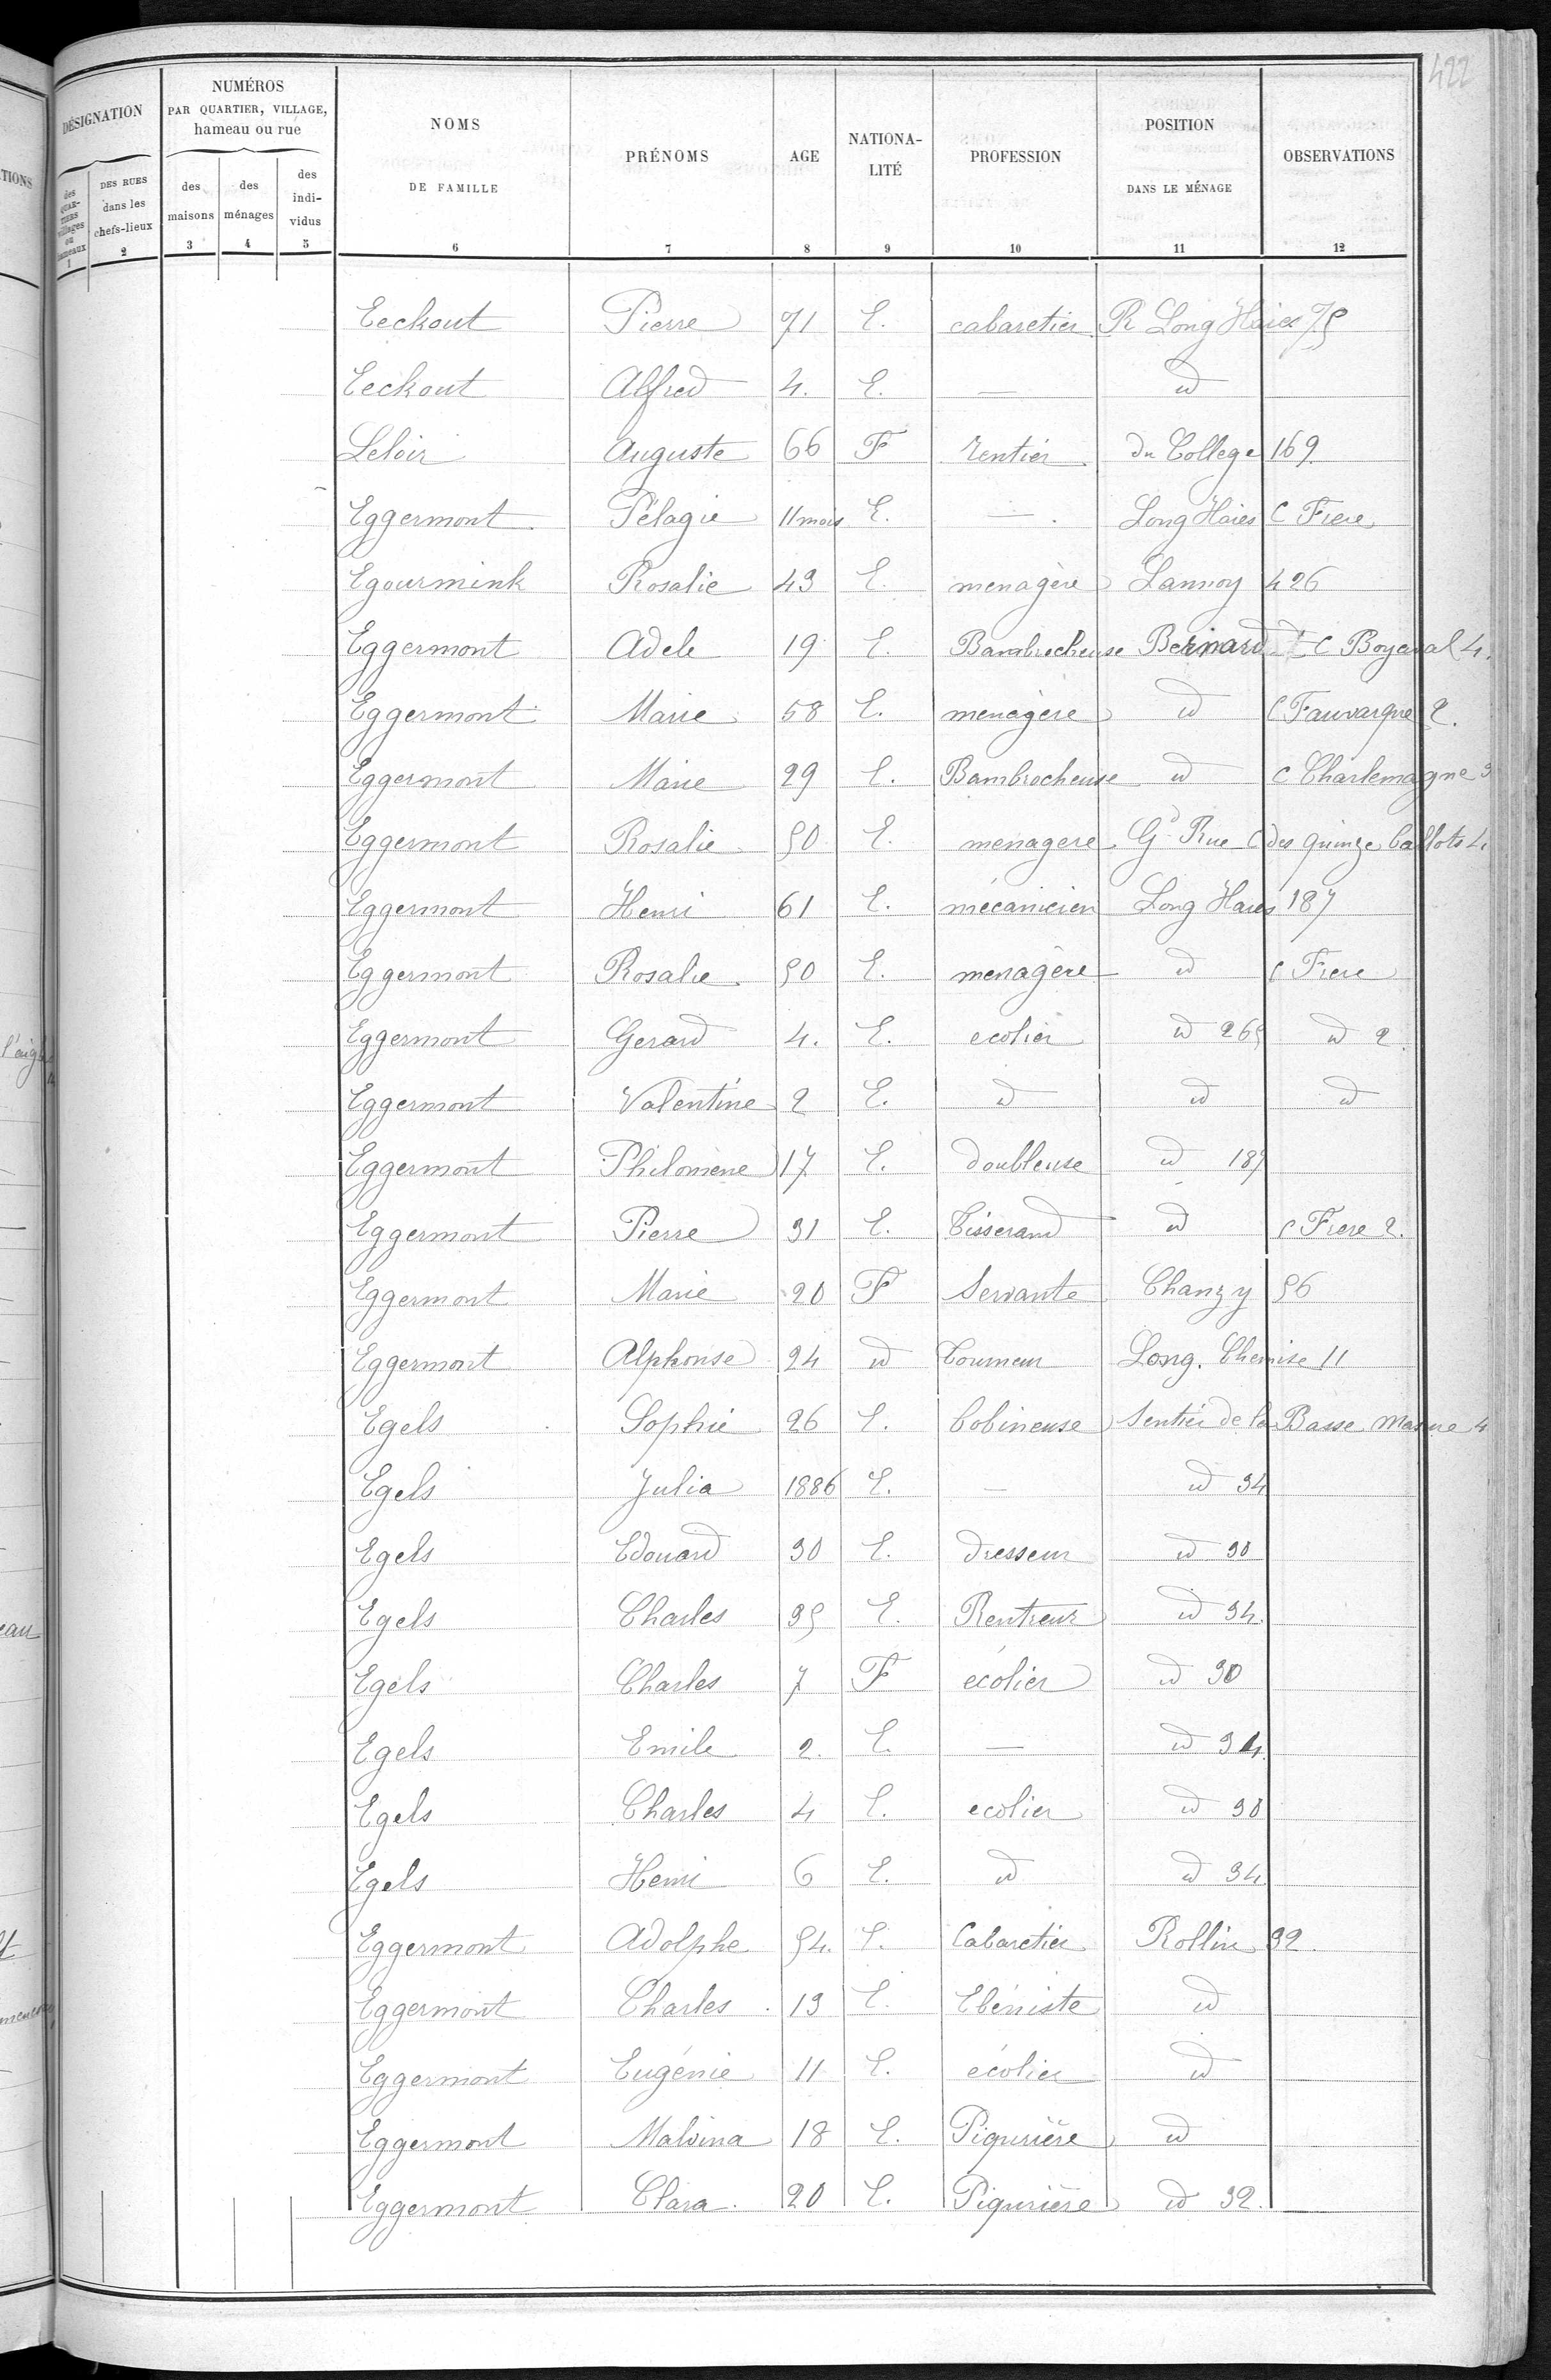 422
DÉSIGNATION
NUMÉROS
PAR QUARTIER, VILLAGE,
hameau ou rue
des QUARTIERS villages ou hameaux
DES RUES dans les chefs-lieux
des maisons
des ménages
des indi-vidus
NOMS DE FAMILLE
PRÉNOMS
AGE
NATIONA-LITÉ
PROFESSION
POSITION DANS LE MÉNAGE
OBSERVATIONS
1 2 3 4 5 6 7 8 9 10 11 12
Eeckout Pierre 71 E. cabaretier R Long Haies 75
Eeckout Alfred 4. E. — id
Leloir Auguste 66 F rentier du College 169
Eggermont Pélagie 11 mois E. — Long Haies C Frere
Egourmink Rosalie 43 E. menagère Lannoy 426
Eggermont Adele 19 E. Bambrocheuse Bernard C Boyaval 4.
Eggermont Marie 58 E. menagère id C Fauvarque 2.
Eggermont Marie 29 E. Bambrocheuse id C Charlemagne 3
Eggermont Rosalie 50 E. menagere Gd Rue C des quinze ballots 4.
Eggermont Henri 61 E. mécanicien Long Haies 187
Eggermont Rosalie 50 E. menagère id C Frere
Eggermont Gerard 4. E. ecolier id 265 id 2.
Eggermont Valentine 2 E. id id id
Eggermont Philomene 17 E. doubleuse id 187
Eggermont Pierre 31 E. Tisserand id C Frere 2.
Eggermont Marie 20 F Servante Chanzy 56
Eggermont Alphonse 24 id Tourneur Long. Chemise 11
Egels Sophie 26 E. bobineuse Sentier de la Basse Masure 4
Egels Julia 1886 E. — id 34
Egels Edouard 30 E. dresseur id 30
Egels Charles 35 E. Rentreur id 34.
Egels Charles 7 F écolier id 30
Egels Emile 2. E. — id 34.
Egels Charles 4 E. ecolier id 30
Egels Henri 6 E. id id 34
Eggermont Adolphe 54. E. Cabaretier Rollin 32.
Eggermont Charles 13 E. Ebéniste id
Eggermont Eugénie 11 E. écolier id
Eggermont Malvina 18 E. Piqurière id
Eggermont Clara 20 E. Piqurière id 32.